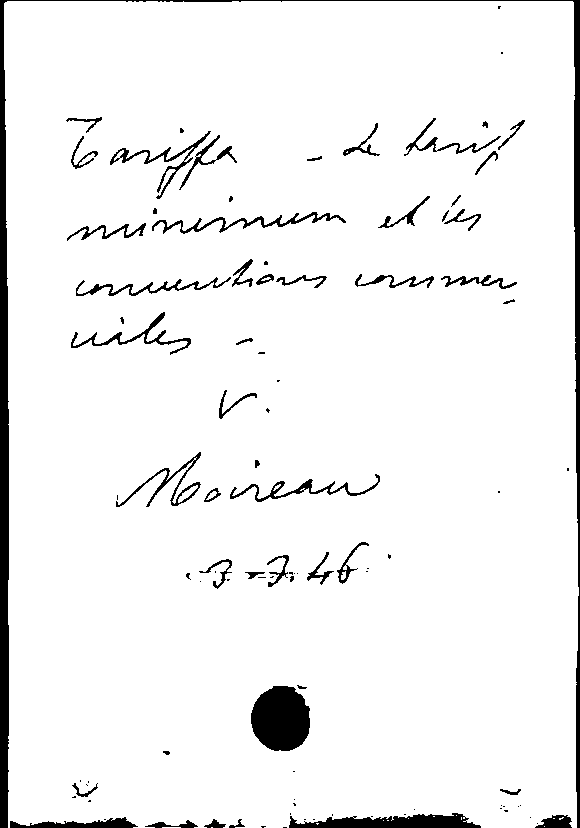 Tariffa - Le tarif
minimum et les
conventions commer-
ciales -
V.
Moireau
3-7.46